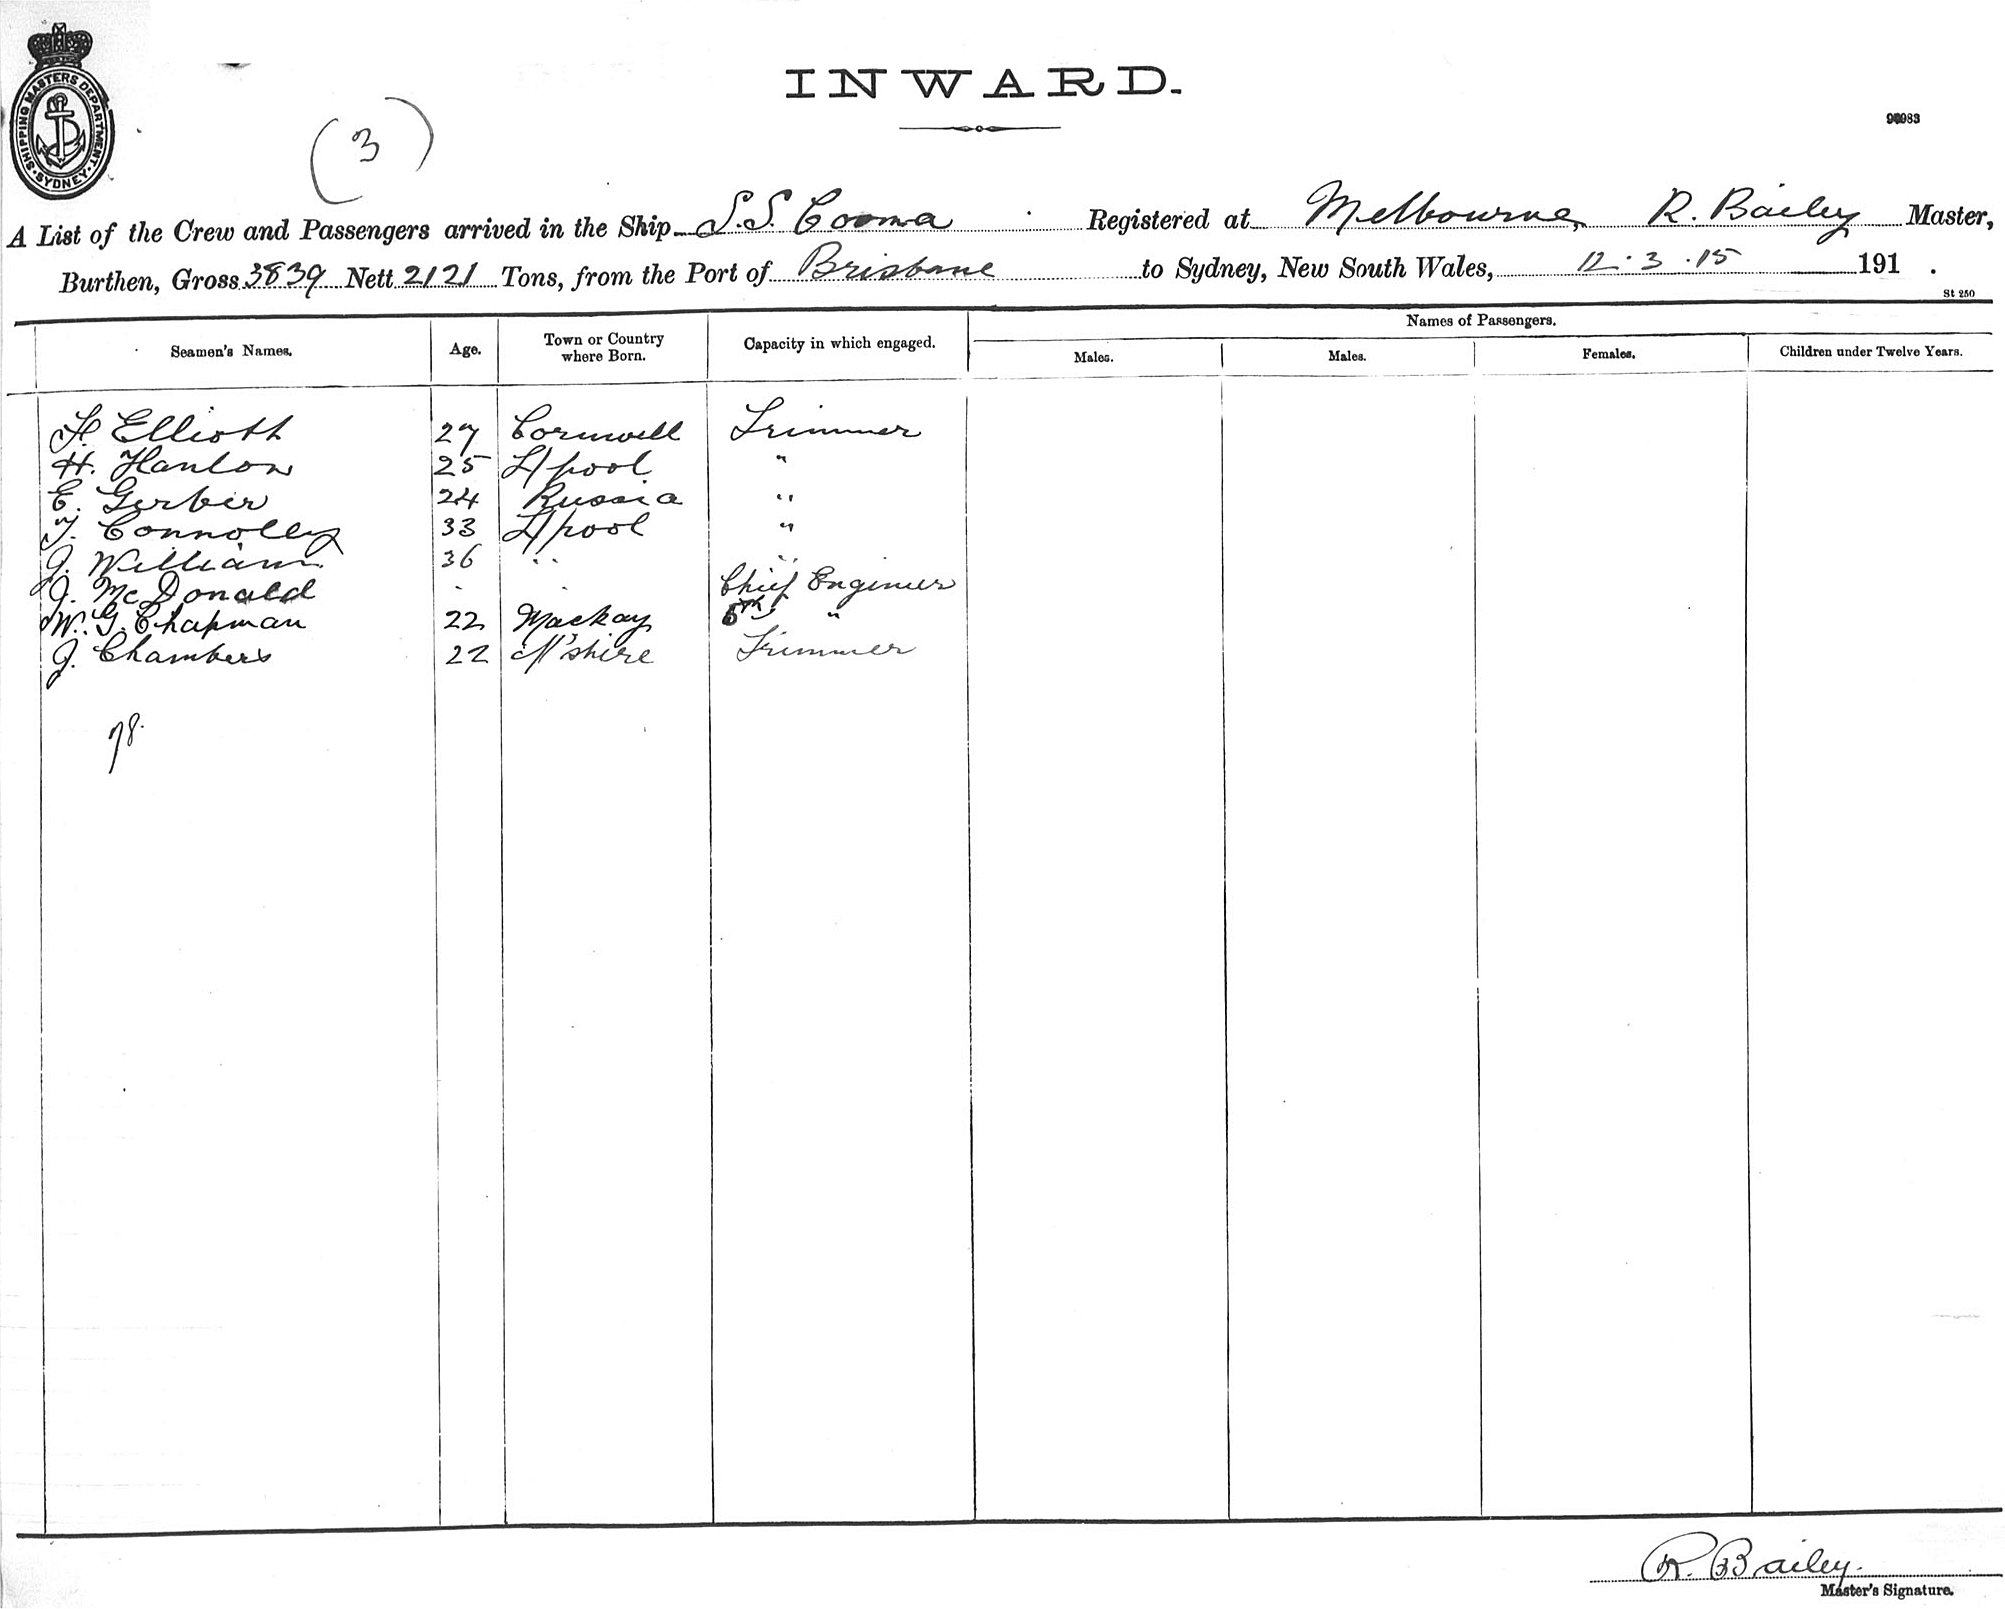 SHIPPING MASTERS DEPARTMENT. SYDNEY
INWARD.
(3)
A List of the Crew and Passengers arrived in the Ship S.S. Cooma Registered at Melbourne, R. Bailey Master,
Burthen, Gross 3839 Nett 2121 Tons, from the Port of Brisbane to Sydney, New South Wales, 12.3.15 191 .
St 250
Names of Passengers.
Seamen's Names. Age. Town or Country where Born. Capacity in which engaged. Males. Males. Females. Children under Twelve Years.
Elliott 27 Cornwell Trimmer
H. Hanlon 25 L'pool "
E. Gerber 24 Russia "
T. Connolly 33 L'pool "
J. William 36 " "
J. McDonald - - Chief Engineer
W. G. Chapman 22 Mackay 5th "
J. Chambers 22 shire Trimmer
78.
R. Bailey.
Master's Signature.